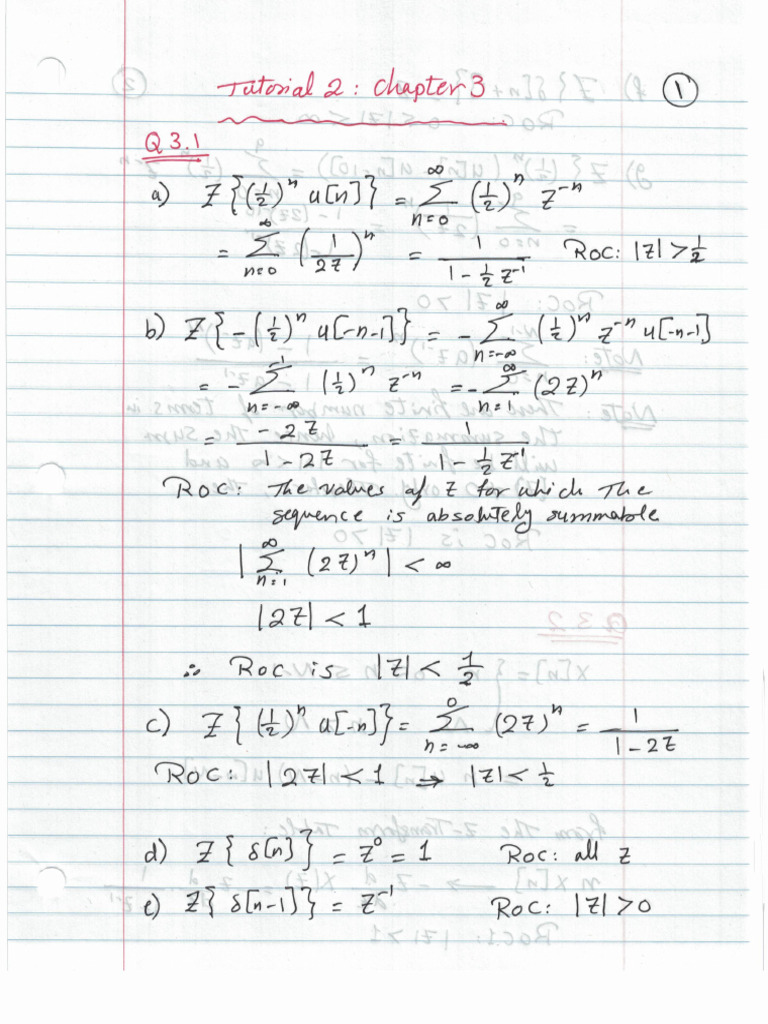 Tutorial 2 : Chapter 3 1
Q 3.1
a) Z{(1/2)^n u[n]} = ∑_{n=0}^{∞} (1/2)^n z^{-n}
= ∑_{n=0}^{∞} (1/2z)^n = 1/(1 - 1/2 z^{-1}) ROC: |z| > 1/2
b) Z{-(1/2)^n u[-n-1]} = -∑_{n=-∞}^{∞} (1/2)^n z^{-n} u[-n-1]
= -∑_{n=-∞}^{-1} (1/2)^n z^{-n} = -∑_{n=1}^{∞} (2z)^n
= -2z/(1 - 2z) = 1/(1 - 1/2 z^{-1})
ROC: The values of z for which the
sequence is absolutely summable
|∑_{n=1}^{∞} (2z)^n| < ∞
|2z| < 1
∴ ROC is |z| < 1/2
c) Z{(1/2)^n u[-n]} = ∑_{n=-∞}^{0} (2z)^n = 1/(1 - 2z)
ROC: |2z| < 1 → |z| < 1/2
d) Z{δ[n]} = z^0 = 1 ROC: all z
e) Z{δ[n-1]} = z^{-1} ROC: |z| > 0